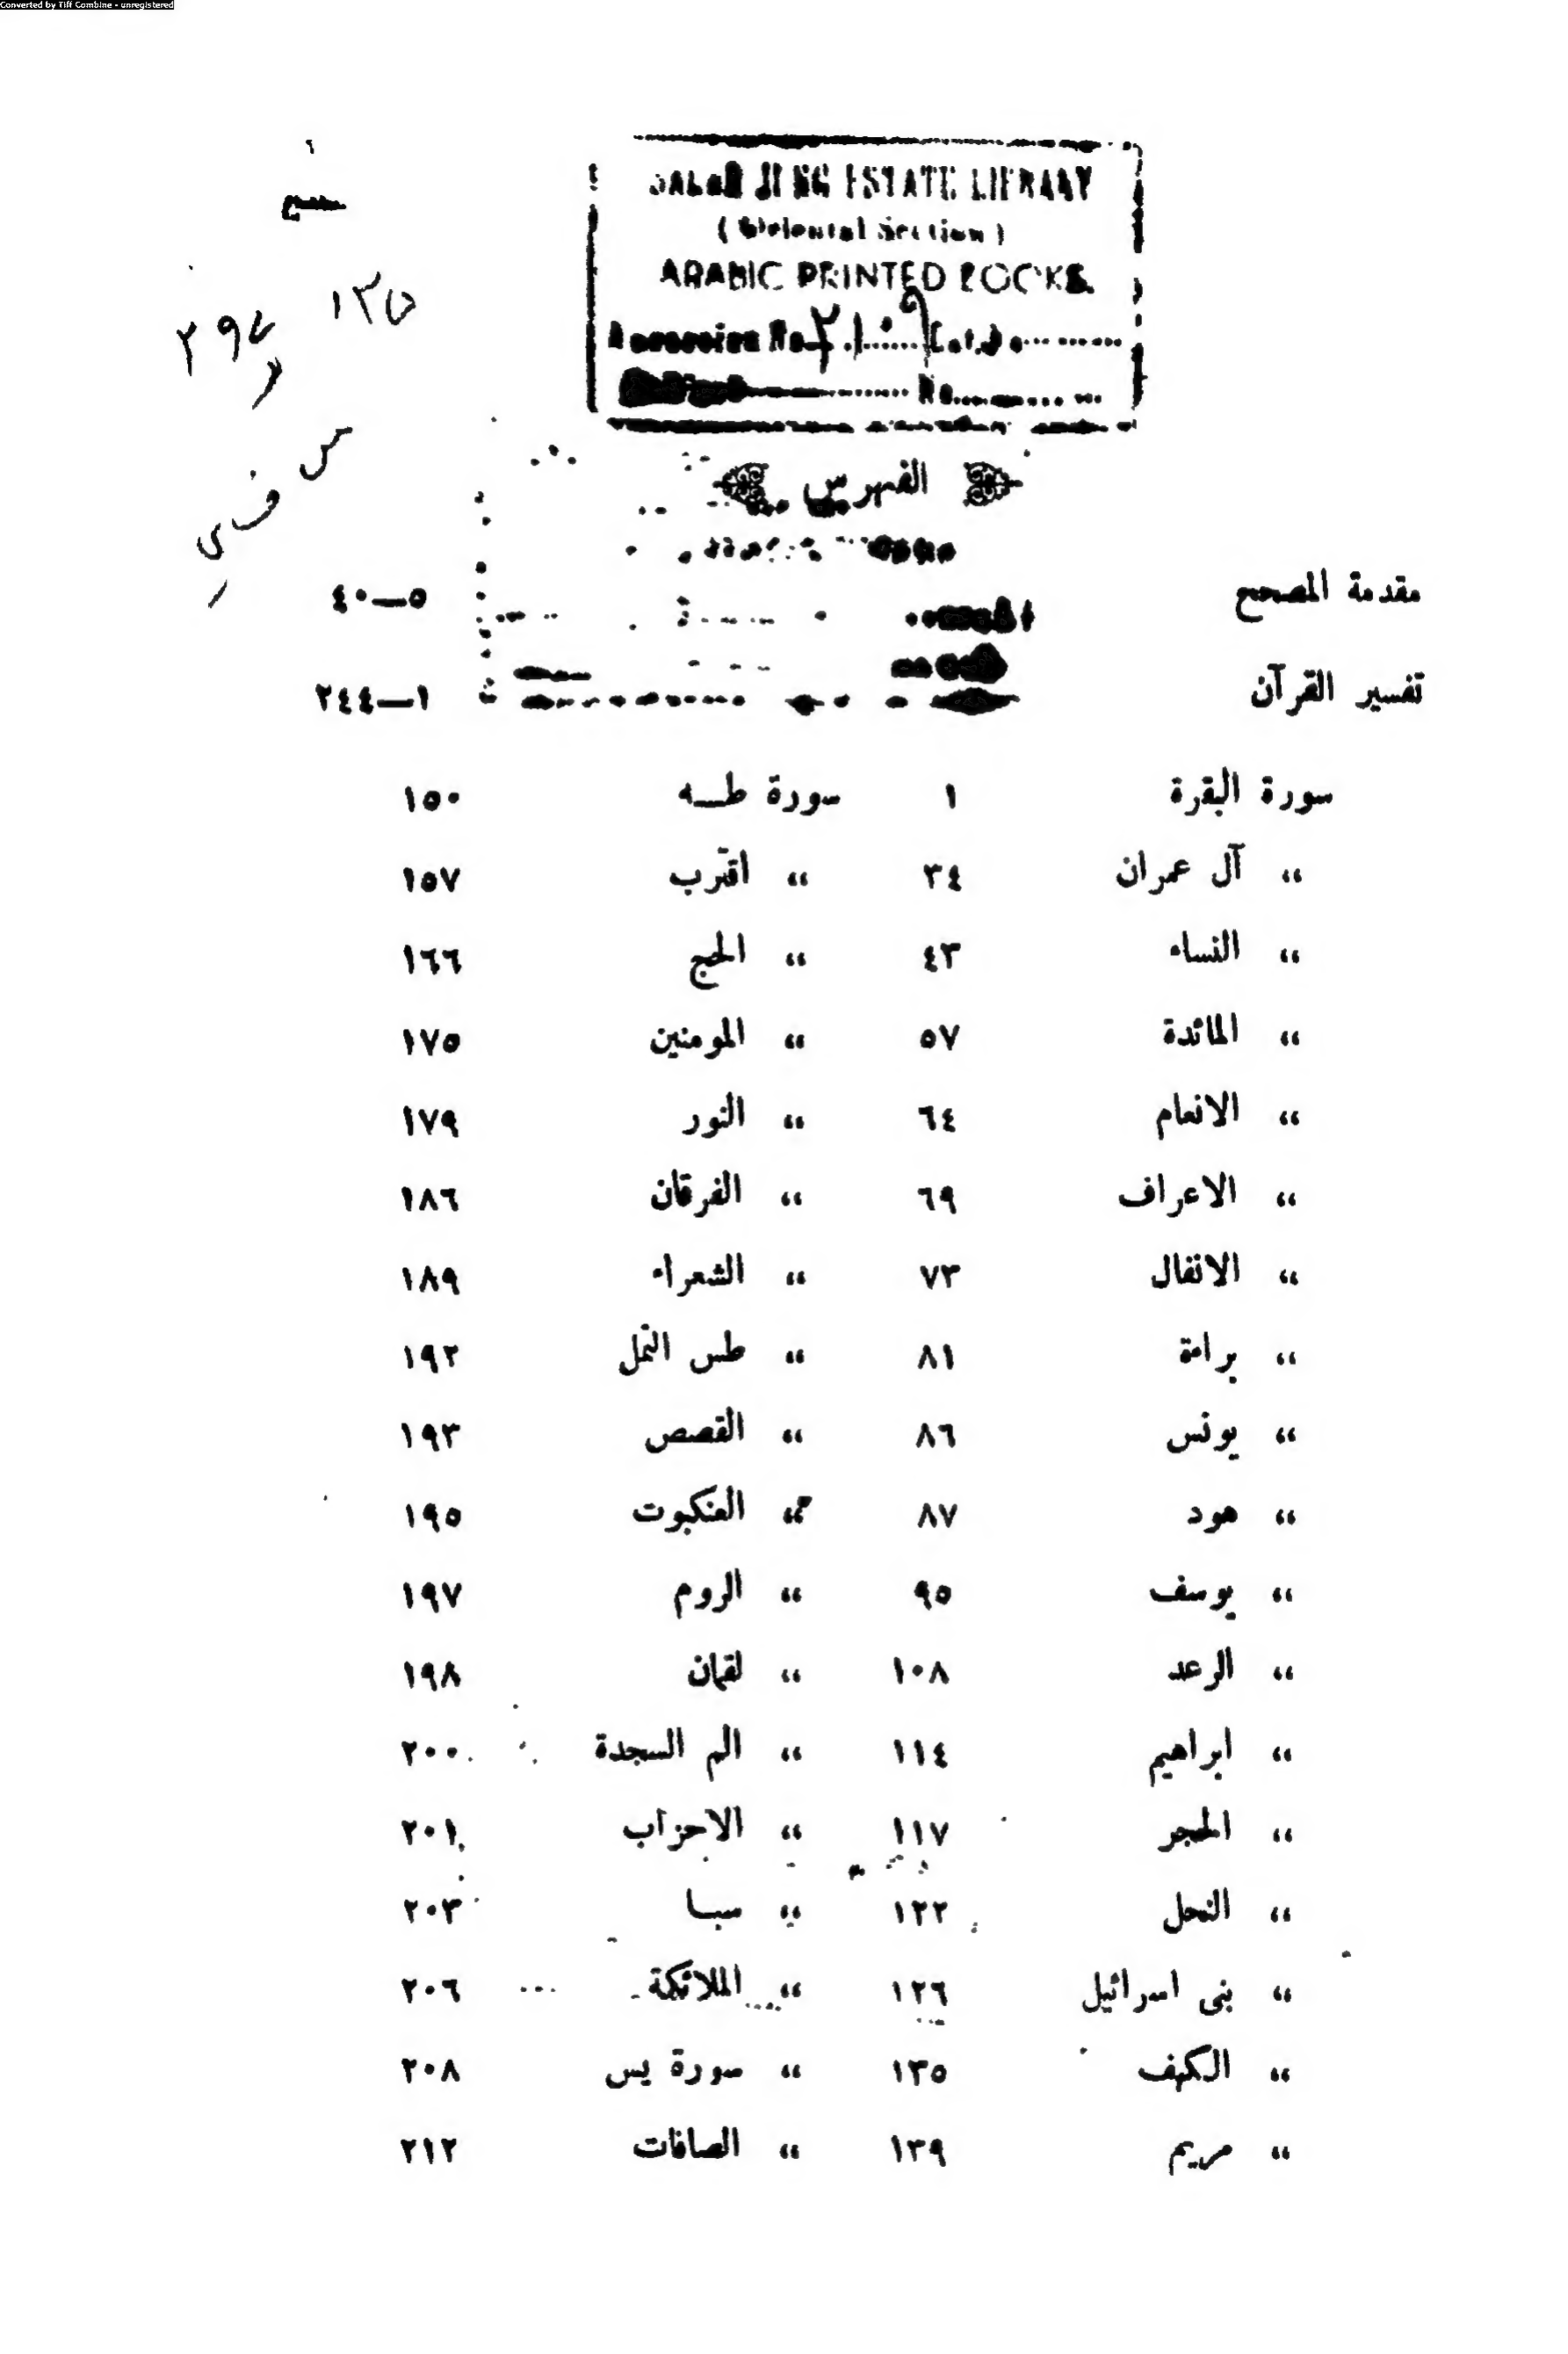 Converted by Tiff Combine - unregistered
ESTATE LIBRARY
ARABIC PRINTED BOOKS
١٣٥
الفهرس
مقدمة المصحح ٥—٤٠
تفسير القرآن ١—٢٤٤
سورة البقرة ١ سورة طــه ١٥٠
،، آل عمران ٣٤ ،، اقترب ١٥٧
،، النساء ٤٣ ،، الحج ١٦٦
،، المائدة ٥٧ ،، المومنين ١٧٥
،، الانعام ٦٤ ،، النور ١٧٩
،، الاعراف ٦٩ ،، الفرقان ١٨٦
،، الانفال ٧٣ ،، الشعراء ١٨٩
،، براءة ٨١ ،، طس النمل ١٩٢
،، يونس ٨٦ ،، القصص ١٩٣
،، هود ٨٧ ،، العنكبوت ١٩٥
،، يوسف ٩٥ ،، الروم ١٩٧
،، الرعد ١٠٨ ،، لقمان ١٩٨
،، ابراهيم ١١٤ ،، الم السجدة ٢٠٠
،، الحجر ١١٧ ،، الاحزاب ٢٠١
،، النحل ١٢٢ ،، سبا ٢٠٣
،، بنى اسرائيل ١٢٦ ،، الملائكة ٢٠٦
،، الكهف ١٣٥ ،، سورة يس ٢٠٨
،، مريم ١٣٩ ،، الصافات ٢١٢